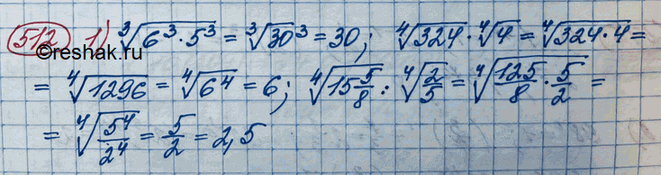 512 1) ∛(6³·5³) = ∛30³ = 30; ∜324·∜4 = ∜(324·4) =
= ∜1296 = ∜6⁴ = 6; ∜(15 5/8) : ∜(2/5) = ∜(125/8 · 5/2) =
= ∜(5⁴/2⁴) = 5/2 = 2,5
©reshak.ru